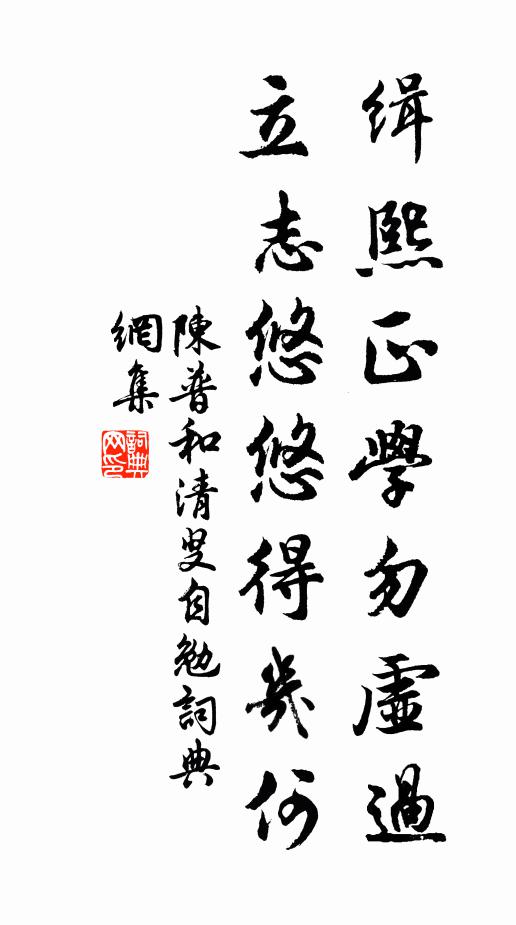 緝熙正學勿虛過
立志悠悠得幾何
陳普和清叟自勉詞典
網集
詞典網印